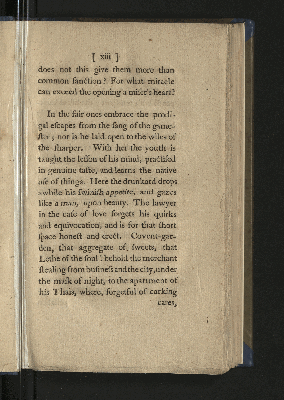 [ xiii ]
does not this give them more than
common ſanction? For what miracle
can exceed the opening a miſer's heart?
In the fair ones embrace the prodi-
gal eſcapes from the fang of the game-
ſter; nor is he laid open to the wiles of
the ſharper. With her the youth is
taught the leſſon of his mind, practiſed
in genuine taſte, and learns the native
uſe of things. Here the drunkard drops
awhile his ſwiniſh appetite, and gazes
like a man, upon beauty. The lawyer
in the caſe of love forgets his quirks
and equivocation, and is for that ſhort
ſpace honeſt and erect. Covent-gar-
den, that aggregate of ſweets, that
Lethe of the ſoul! behold the merchant
ſtealing from buſineſs and the city, under
the maſk of night, to the apartment of
his Thais, where, forgetful of carking
cares,